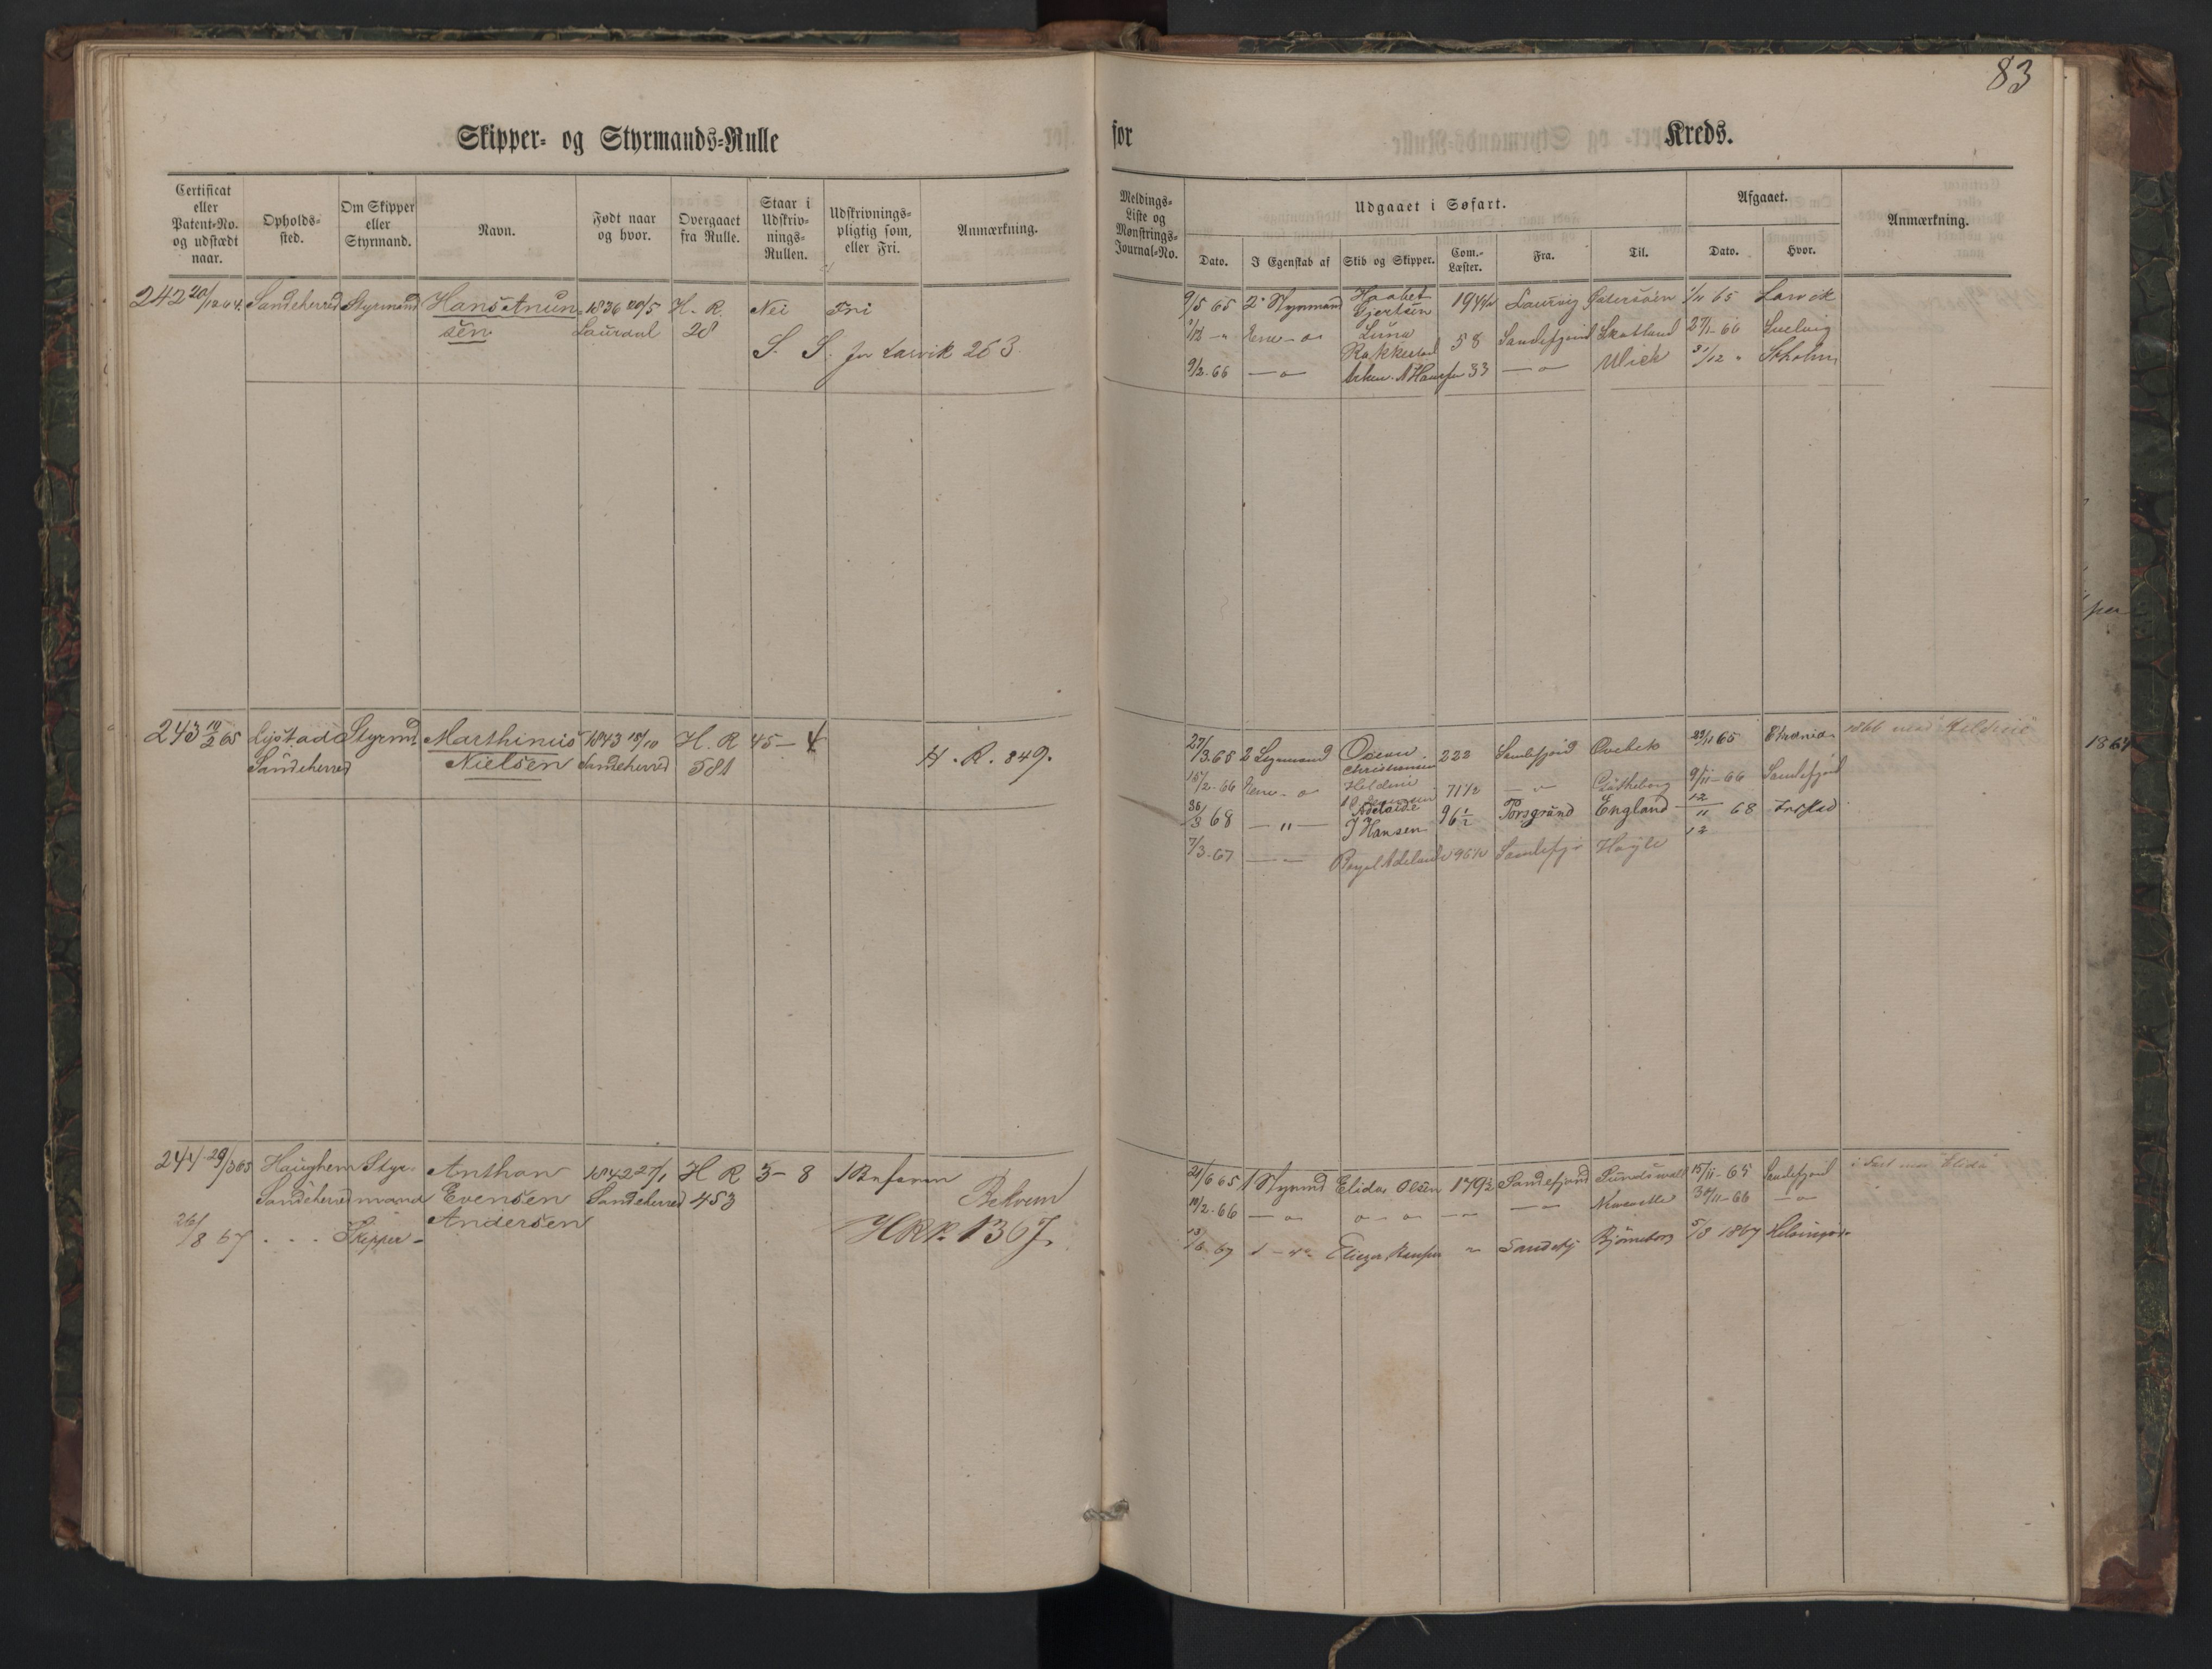 83
Skipper- og Styrmands-Rulle
for Kreds.
Certificat eller Patent-No. og udstædt naar.
Opholds-sted.
Om Skipper eller Styrmand.
Navn.
Født naar og hvor.
Overgaaet fra Rulle.
Staar i Udskriv-nings-Rullen.
Udskrivnings-pligtig som, eller Fri.
Anmærkning.
Meldings-Liste og Mønstrings-Journal-No.
Udgaaet i Søfart.
Dato.
I Egenskab af
Skib og Skipper.
Com.-Læster.
Fra.
Til.
Afgaaet.
Dato.
Hvor.
Anmærkning.
242 20/12 64. Sandeherred Styrmand Hans Anun- 1836 20/5 H. R. Nei Fri
sen Laurdal 28
S. S. for Larvik 263.
9/5 65 2 Styrmand Haabet Gjertsen 194 1/2 Laurvig Østersöen 1/11 65 Larvik
Luna Rakkestad 58 Sandefjord Skotland 27/1-66 Svelvig
9/2-66 — " — A Hansen 33 — " — Wick 31/12 "
243 19/2 65 Styrmd Marthinius 1843 15/10 H. R 45 — 4
Sandeherred Nielsen Sandeherred 581 H. R. 849.
27/3.65 2 Styrmand Christiansen 222 Sandefjord Qvebek 23/11 65
15/2-66 71 1/2 — " — Gøtheborg 9/11-66 Sandefjord
30/3 68 — " — Adelaide J Hansen 96 1/2 Porsgrund England 12/11 68
7/3-67 — " — Royal Adelaide 96 1/2 Sandefj
1866 med
244 29/3 65 Haughem Styr- Anthon 1842 27/1 H R 3 — 8
Sandeherred mand Evensen Sandeherred 453 Bekvem
26/8 67 . . . Skipper - Andersen HRN. 1367.
21/6 65 1 Styrmd Elida Olsen 179 1/2 Sandefjord Sundswall 15/11-65 Sandefjord
10/2-66 — " — " — " — " — Newcastle 30/11-66 — " —
13/6-67 1 — " - Sandefj Bjørneborg 5/8 1867 Helsingør
i Fart med "Elida"
1867